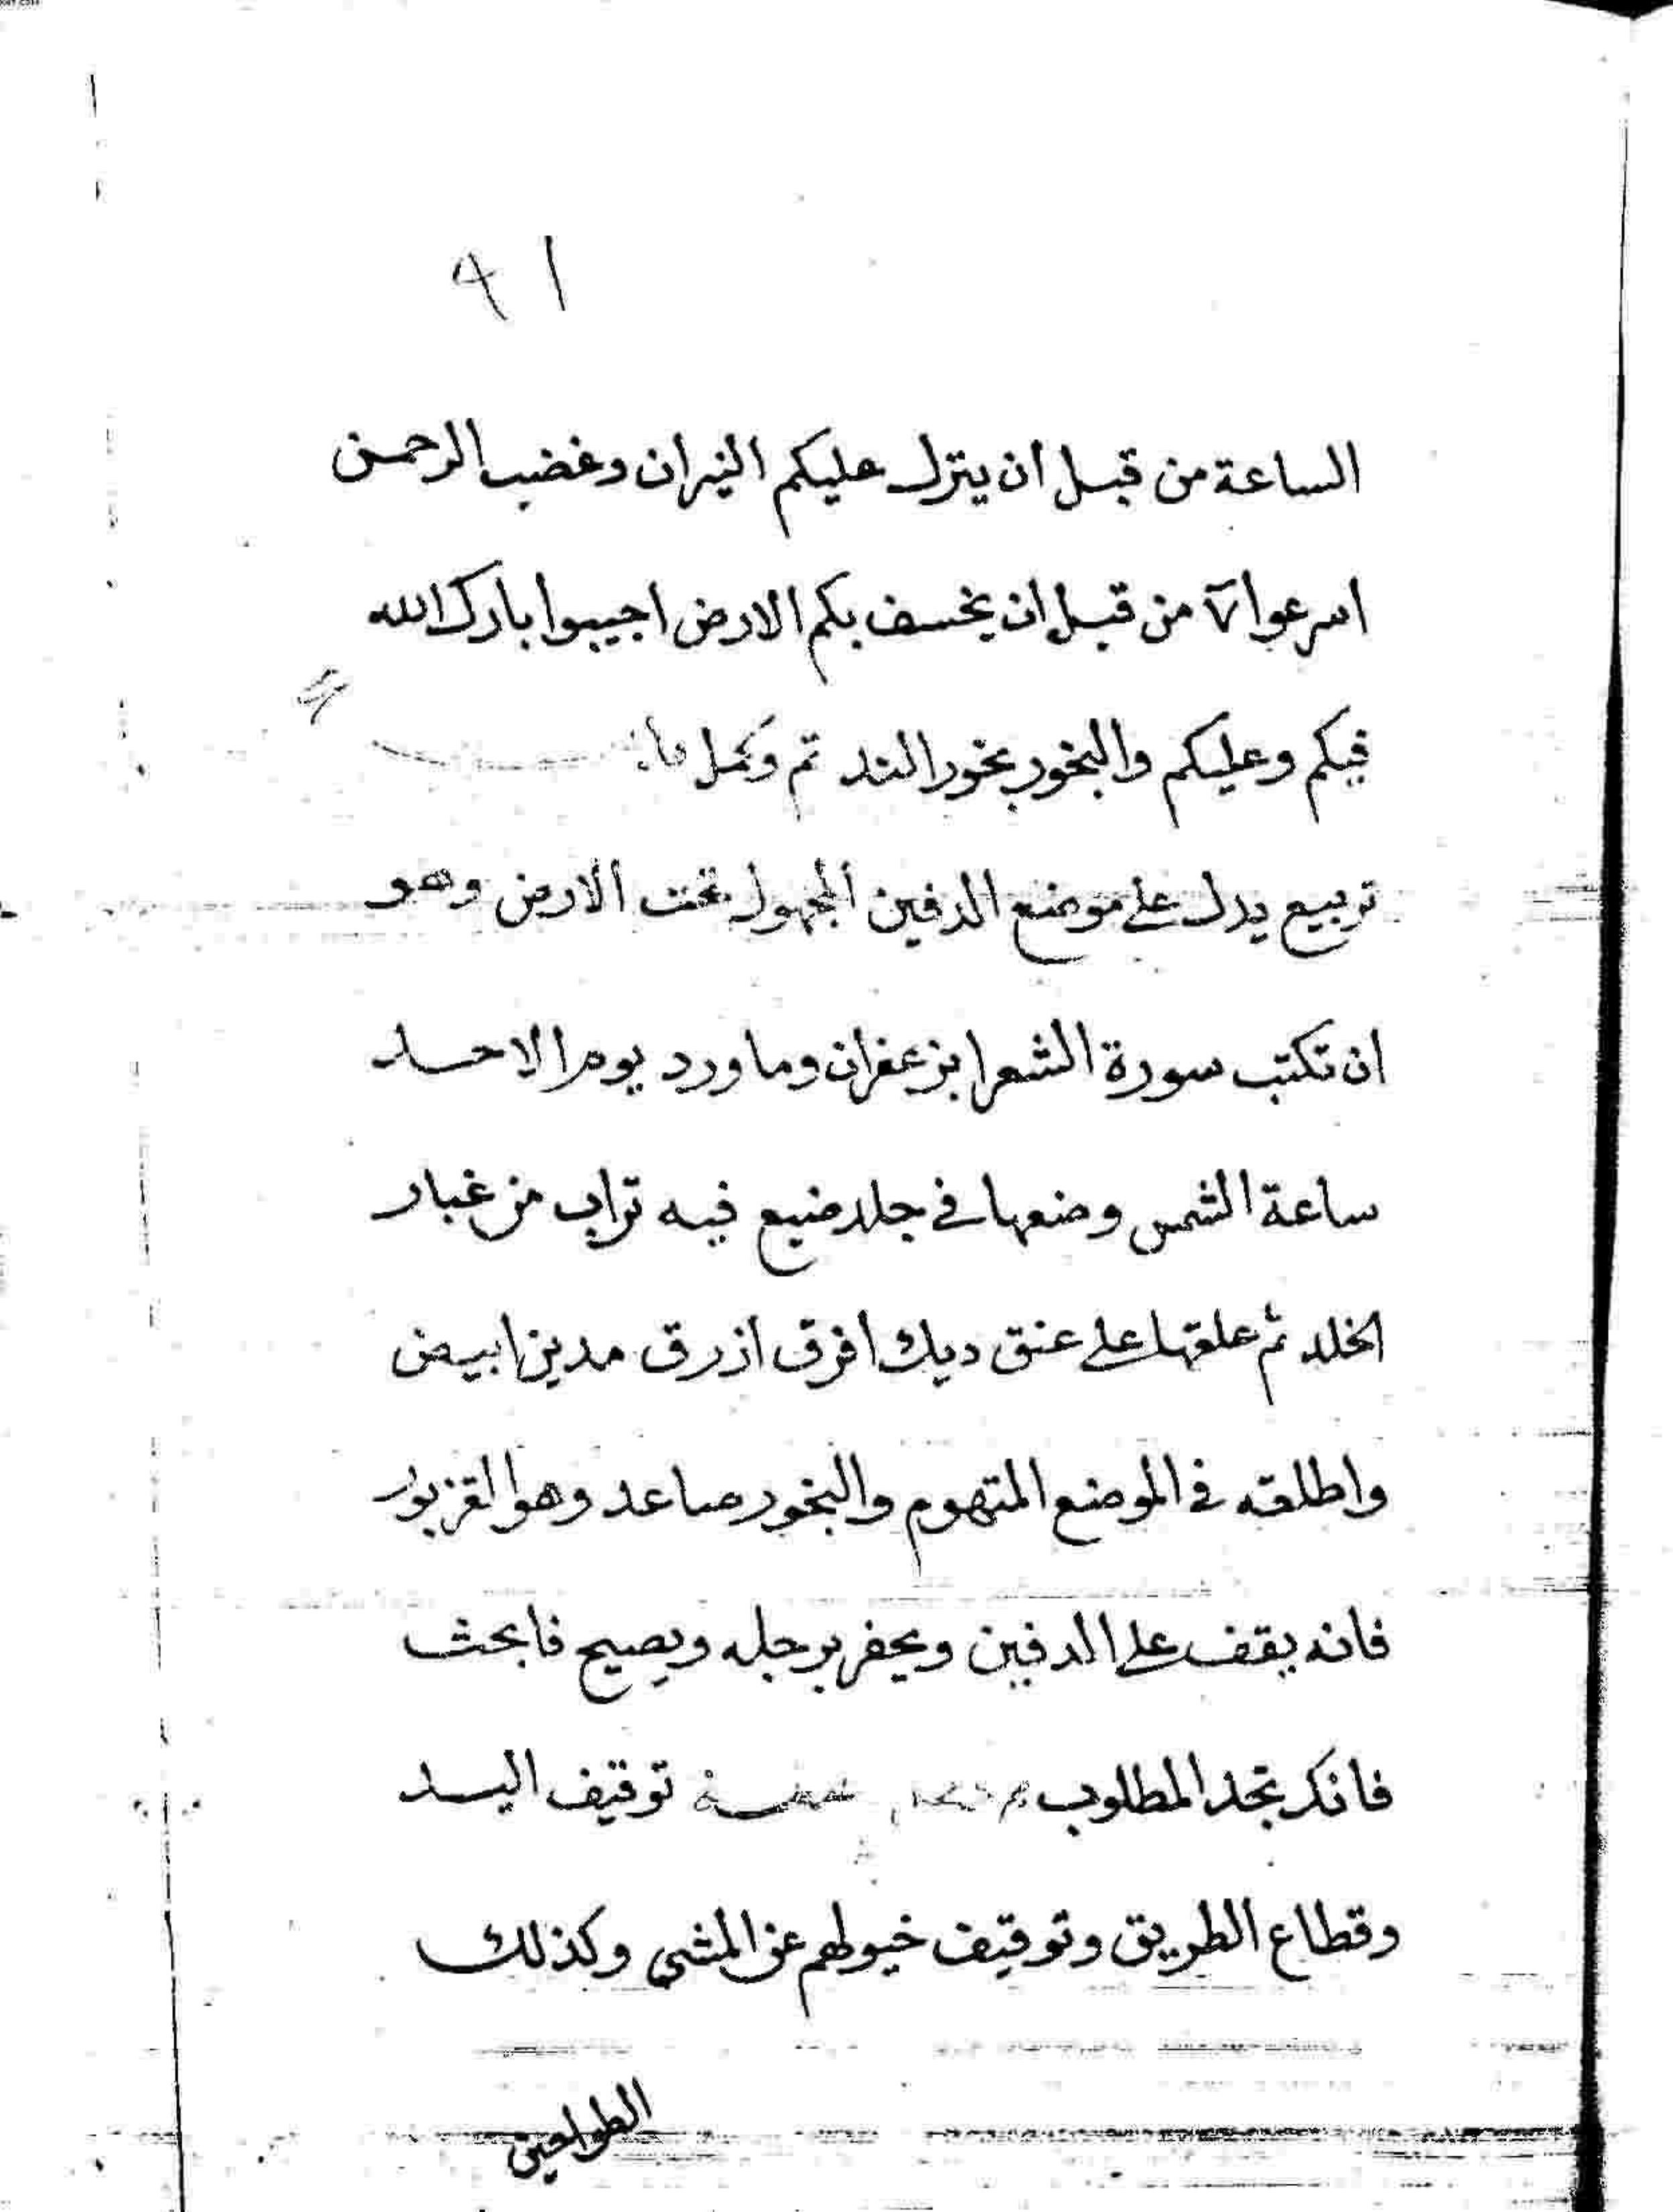 ٩١
الساعة من قبل ان ينزل عليكم النيران وغضب الرحمن
اسرعوا من قبل ان يخسف بكم الارض اجيبوا بارك الله
فيكم وعليكم والبخور بخور الند تم وكمل
تربيع يدل على موضع الدفين المجهول تحت الارض وهو
ان تكتب سورة الشعرا بزعفران وماورد يوم الاحد
ساعة الشمس وضعها في جلد ضبع فيه تراب من غبار
الخلد ثم علقها على عنق ديك افرق ازرق ابيض
واطلقه في الموضع المتهوم والبخور صاعد وهو القزبور
فانه يقف على الدفين ويحفر برجله ويصيح فابحث
فانك تجد المطلوب توقيف اليد
وقطاع الطريق وتوقيف خيولهم عن المشي وكذلك
الطواحين